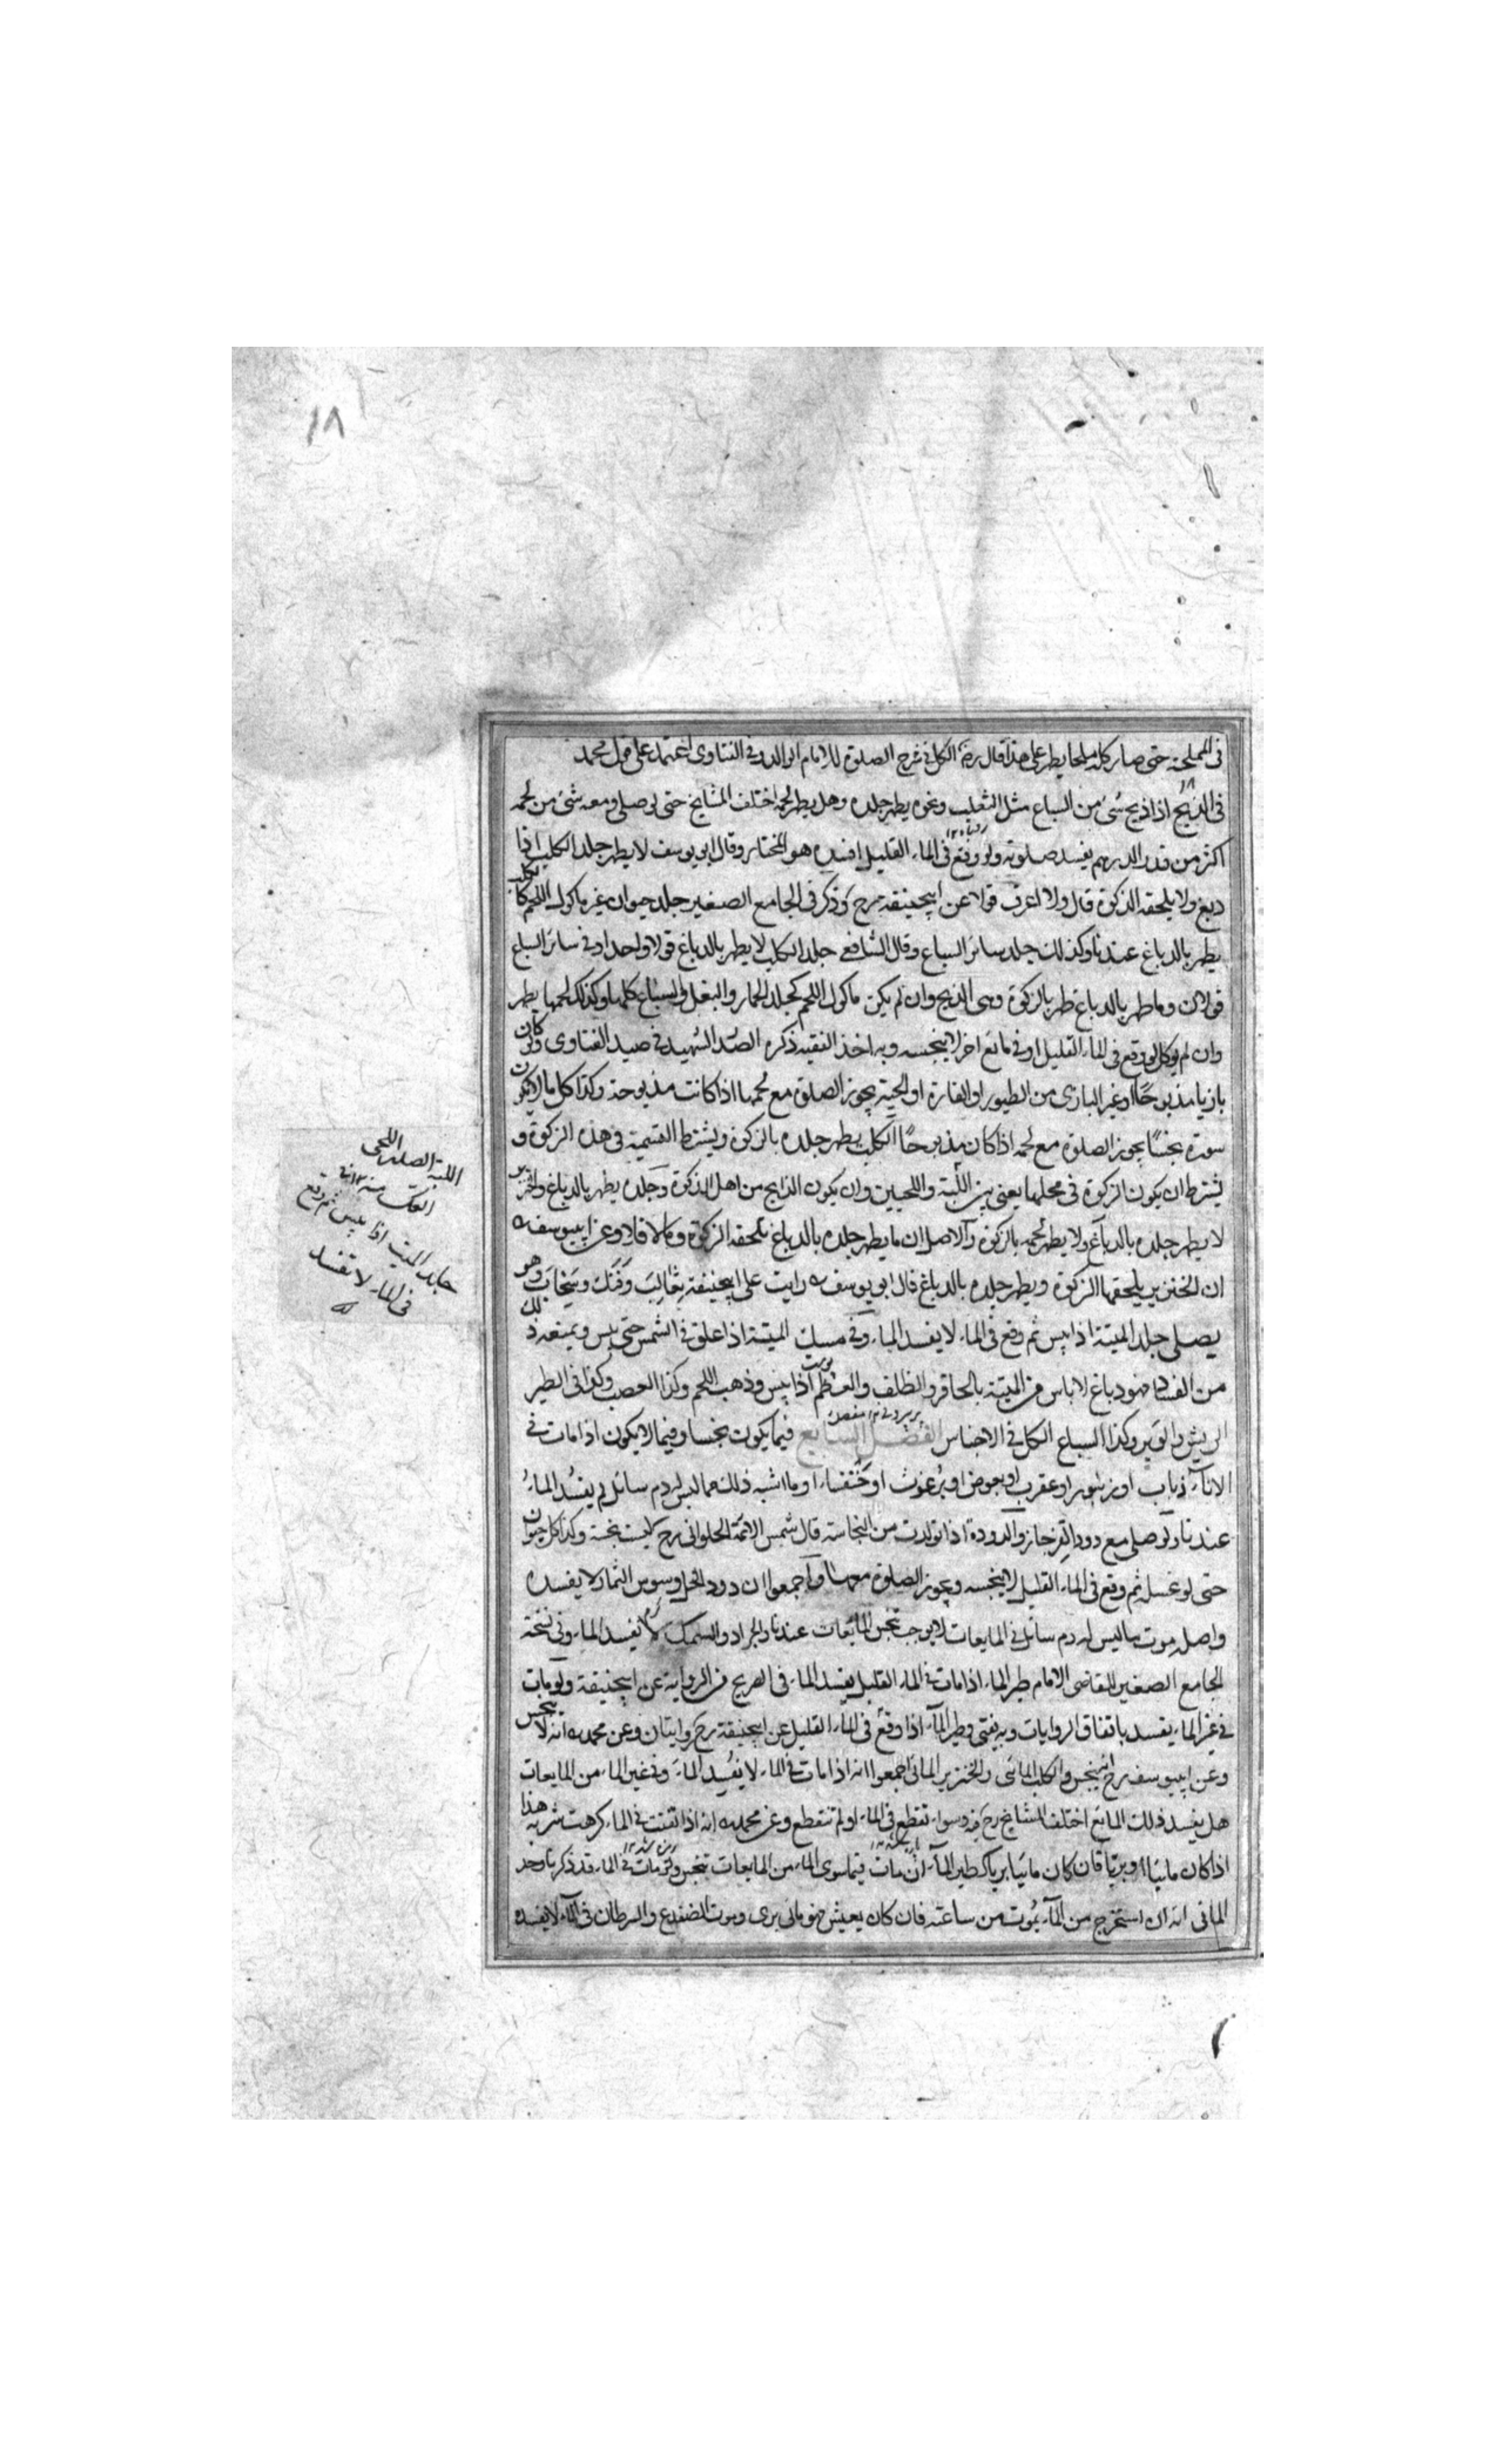 ١٨
فى المملحة حتى صار كله ملحا يطهر على هذا قال رضه الكل فى شرح الصلوة للامام الوالد وفى الفتاوى اعتمد على قول محمد
فى الذبح اذا ذبح شىء من السباع مثل الثعلب ونحوه يطهر جلده وهل يطهر لحمه اختلف المشايخ حتى لو صلى ومعه شئ من لحمه
اكثر من قدر الدرهم يفسد صلوته ولو وقع فى الماء القليل افسده هو المختار وقال ابو يوسف لا يطهر جلد الكلب اذا
دبغ ولا يلحقه الذكوة قال ولا اعرف قولا عن ابيحنيفة رح وذكر فى الجامع الصغير جلد حيوان غير ماكول اللحم
يطهر بالدباغ عندنا وكذلك جلد سائر السباع وقال الشافعى جلد الكلب لا يطهر بالدباغ قولا واحدا وفى سائر السباع
قولان وما طهر بالدباغ طهر بالزكوة وهى الذبح وان لم يكن ماكول اللحم كجلد الحمار والبغل والسباع كلها وكذلك لحمها يطهر
وان لم يوكل لو وقع فى الماء القليل او فى مائع اخر لا ينجسه وبه اخذ الفقيه ذكره الصدر الشهيد فى صيد الفتاوى ولو كان
بازيا مذبوحًا او غير البازى من الطيور او الفارة او الحية يجوز الصلوة مع لحمها اذا كانت مذبوحة وكذا كل ما لا يكون
سوره نجسًا يجوز الصلوة مع لحمه اذا كان مذبوحًا الكلب يطهر جلده بالزكوة ويشترط التسمية فى هذه الزكوة و
يشترط ان يكون الزكوة فى محلها يعنى بين اللبة واللحيين وان يكون الذابح من اهل الذكوة وجلده يطهر بالدباغ والخنزير
لا يطهر جلده بالدباغ ولا يطهر لحمه بالزكوة والاصل ان ما يطهر جلده بالدباغ يلحقه الزكوة وما لا فلا وعن ابييوسف
ان الخنزير يلحقها الزكوة ويطهر جلده بالدباغ قال ابو يوسف رايت على ابيحنيفة ثعالب وفنك وسنجاب وهو
يصلى جلد الميتة اذا يبس ثم وقع فى الماء لا يفسد الماء وفى مسك الميتة اذا علق فى الشمس حتى يبس ويمنعه ذلك
من الفساد فهو دباغ لا باس من الميتة بالحافر والظلف والعظم اذا يبس وذهب اللحم وكذا العصب وكذا فى الطير
الريش والوبر وكذا السباع الكل فى الاجناس الفصل السابع فيما يكون نجسا وفيما لا يكون اذا مات فى
الاناء ذباب او زنبور او عقرب او بعوض او برغوث او خنفساء او ما اشبه ذلك مما ليس له دم سائل لم يفسد الماء
عندنا ولو صلى مع دود القز جاز والدودة اذا تولدت من النجاسة قال شمس الائمة الحلوانى رح ليست بنجسة وكذا كل حيوان
حتى لو غسل ثم وقع فى الماء القليل لا ينجسه ويجوز الصلوة معها واجمعوا ان دود الخل وسوس الثمار لا يفسده
واصله موت ما ليس له دم سائل فى المايعات لا يوجب تنجس المائعات عندنا والجراد والسمك لا يفسد الماء وفى نسخة
الجامع الصغير للقاضى الامام طير الماء اذا مات فى الماء القليل يفسد الماء فى الصحيح من الرواية عن ابيحنيفة ولو مات
فى غير الماء يفسد باتفاق الروايات وبه يفتى وطير الماء اذا وقع فى الماء القليل عن ابيحنيفة رح روايتان وعن محمد انه لا ينجس
وعن ابييوسف رح انه ينجس والكلب المائى والخنزير المائى اجمعوا انه اذا مات فى الماء لا يفسد الماء وفى غير الماء من المايعات
هل يفسد ذلك المائع اختلف المشايخ رح فيه وسواء تقطع فى الماء او لم تنقطع وعن محمد انه اذا تفتت فى الماء كرهت شربه هذا
اذا كان مائيا او بريا فان كان مائيا بريا كطير الماء ان مات فيما سوى الماء من المايعات تنجس ولو مات فى الماء قد ذكرنا وحد
المائى انه ان استخرج من الماء يموت من ساعته فان كان يعيش فهو مائى برى وموت الضفدع والسرطان فى الماء لا يفسده
اللبة الصدر اللحى
الفك منه
جلد الميت اذا يبس ثم وقع
فى الماء لا تفسد